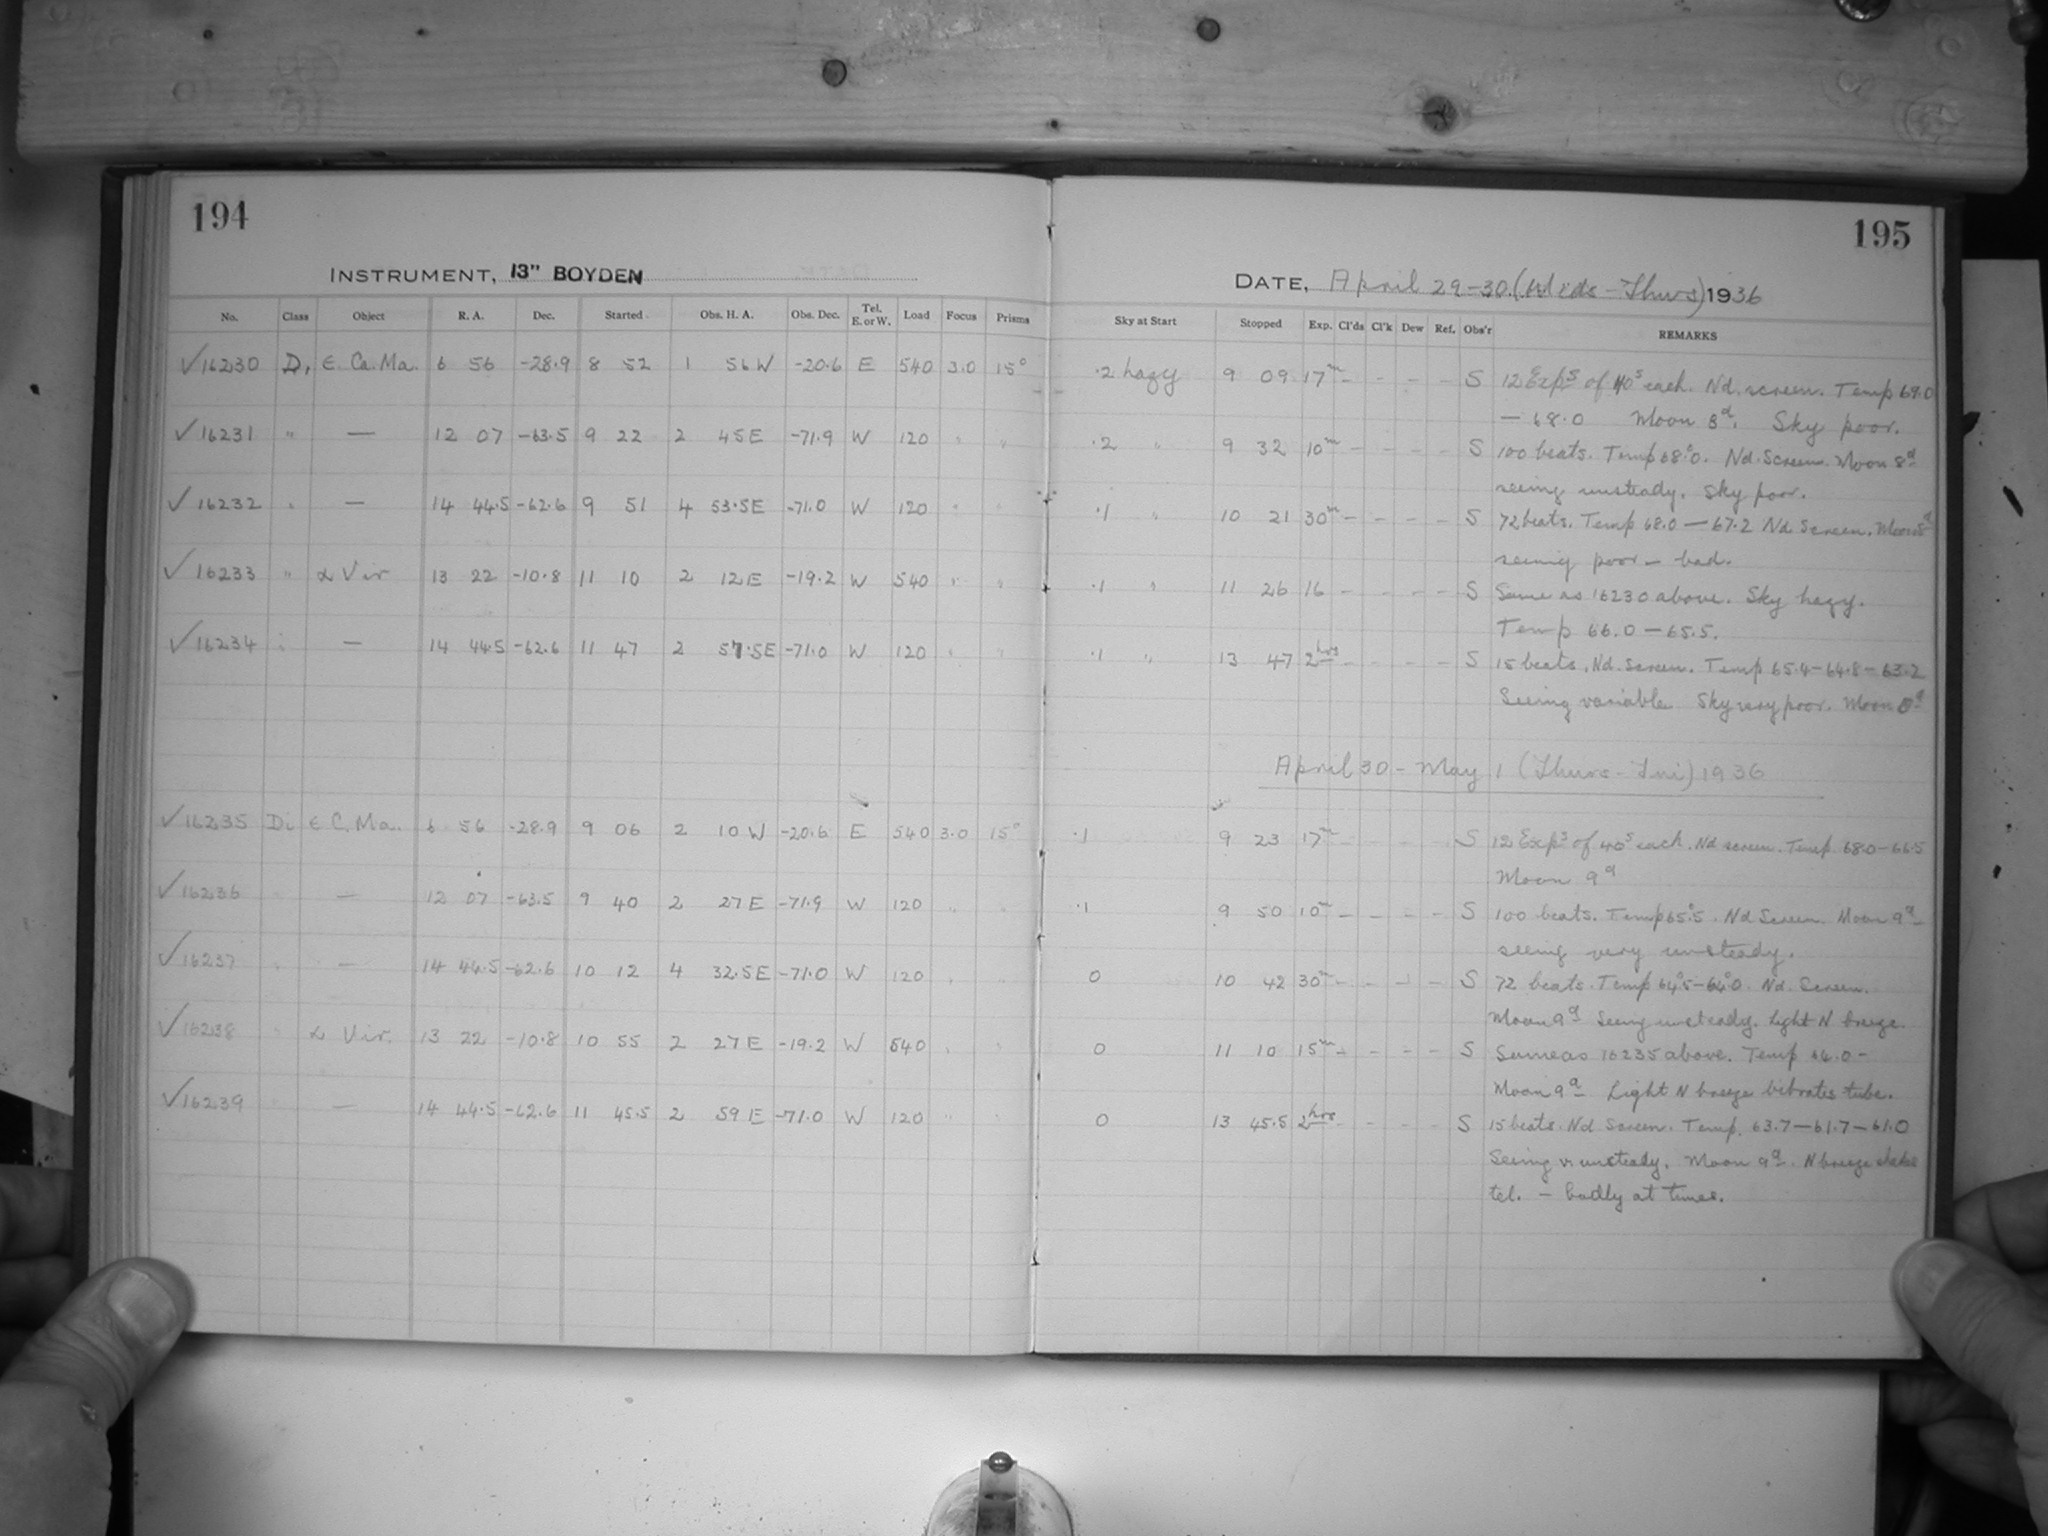 194
195
INSTRUMENT, 13" BOYDEN
DATE, April 29-30 (Weds - Thurs) 1936
No. Class Object R. A. Dec. Started Obs. H. A. Obs. Dec. Tel. E. or W. Load Focus Prisms Sky at Start Stopped Exp. Cl'ds Cl'k Dew Ref. Obs'r REMARKS
✓16230 D, ε Ca. Ma. 6 56 -28.9 8 52 1 56 W -20.6 E 540 3.0 15° .2 hazy 9 09 17m - - - - S 12 Exps of 40s each. Nd. screen. Temp 69.0
— 68.0 Moon 8d. Sky poor.
✓16231 " — 12 07 -63.5 9 22 2 45 E -71.9 W 120 " " .2 " 9 32 10m - - - - S 100 beats. Temp 68°.0. Nd. Screen. Moon 8d
seeing unsteady. Sky poor.
✓16232 " — 14 44.5 -62.6 9 51 4 53.5 E -71.0 W 120 " " .1 " 10 21 30m - - - - S 72 beats. Temp 68.0 — 67.2 Nd. Screen. Moon 8d
seeing poor — bad.
✓16233 " α Vir 13 22 -10.8 11 10 2 12 E -19.2 W 540 " " .1 " 11 26 16 - - - - S Same as 16230 above. Sky hazy.
Temp 66.0 — 65.5.
✓16234 " — 14 44.5 -62.6 11 47 2 57.5 E -71.0 W 120 " " .1 " 13 47 2hrs - - - - S 15 beats. Nd. Screen. Temp 65.4 - 64.8 - 63.2
Seeing variable Sky very poor. Moon 8d
April 30 - May 1 (Thurs - Fri) 1936
✓16235 Di ε C. Ma. 6 56 -28.9 9 06 2 10 W -20.6 E 540 3.0 15° .1 9 23 17m - - - - S 12 Exps of 40s each. Nd screen. Temp. 68.0 - 66.5
Moon 9d
✓16236 " — 12 07 -63.5 9 40 2 27 E -71.9 W 120 " " .1 9 50 10m - - - - S 100 beats. Temp 65°.5. Nd Screen. Moon 9d
seeing very unsteady.
✓16237 " — 14 44.5 -62.6 10 12 4 32.5 E -71.0 W 120 " " 0 10 42 30m - - - - S 72 beats. Temp 64°.5 - 64°.0 Nd. Screen.
Moon 9d Seeing unsteady. Light N breeze.
✓16238 " α Vir. 13 22 -10.8 10 55 2 27 E -19.2 W 540 " " 0 11 10 15m - - - - S Same as 16235 above. Temp 64.0 -
Moon 9d Light N breeze vibrates tube.
✓16239 " — 14 44.5 -62.6 11 45.5 2 59 E -71.0 W 120 " " 0 13 45.5 2hrs - - - - S 15 beats. Nd Screen. Temp. 63.7 — 61.7 — 61.0
Seeing v. unsteady. Moon 9d. N breeze shakes
tel. — badly at times.